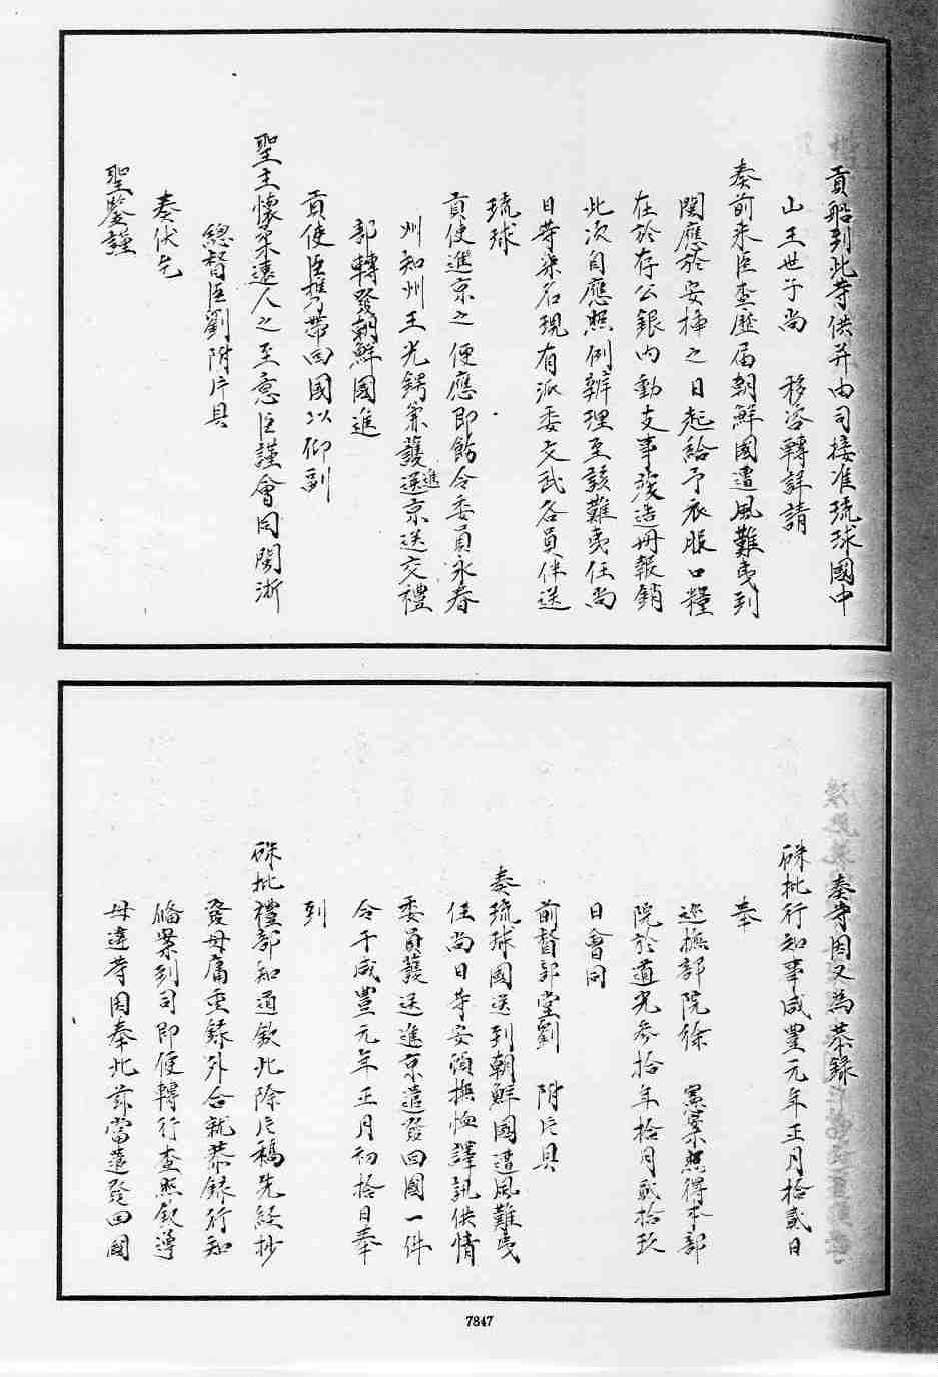 貢船到此等供并由司接准琉球國中
山王世子尚　移咨轉詳請
奏前来臣查歷届朝鮮國遭風難夷到
閩應於安插之日起給予衣服口糧
在於存公銀内動支事竣造册報銷
此次自應照例辦理至該難夷任尚
日等柒名現有派委文武各員伴送
琉球
貢使進京之便應即飭令委員永春
州知州王光鍔兼護進送京送交禮
部轉發朝鮮國進
貢使臣携帶回國以仰副
聖主懷柔遠人之至意臣謹會同閩浙
總督臣劉附片具
奏伏乞
聖鑒謹
奏等因又為恭錄
硃批行知事咸豐元年正月拾貳日
奉
巡撫部院徐　憲案照得本部
院於道光叁拾年拾月貳拾玖
日會同
前督部堂劉　附片具
奏琉球國送到朝鮮國遭風難夷
任尚日等安頓撫恤譯訊供情
委員護送進京遣發回國一件
今于咸豐元年正月初拾日奉
到
硃批禮部知道欽此除片稿先經抄
發毋庸重錄外合就恭錄行知
偹案到司即便轉行查照欽遵
毋違等因奉此茲當遣發回國
7847